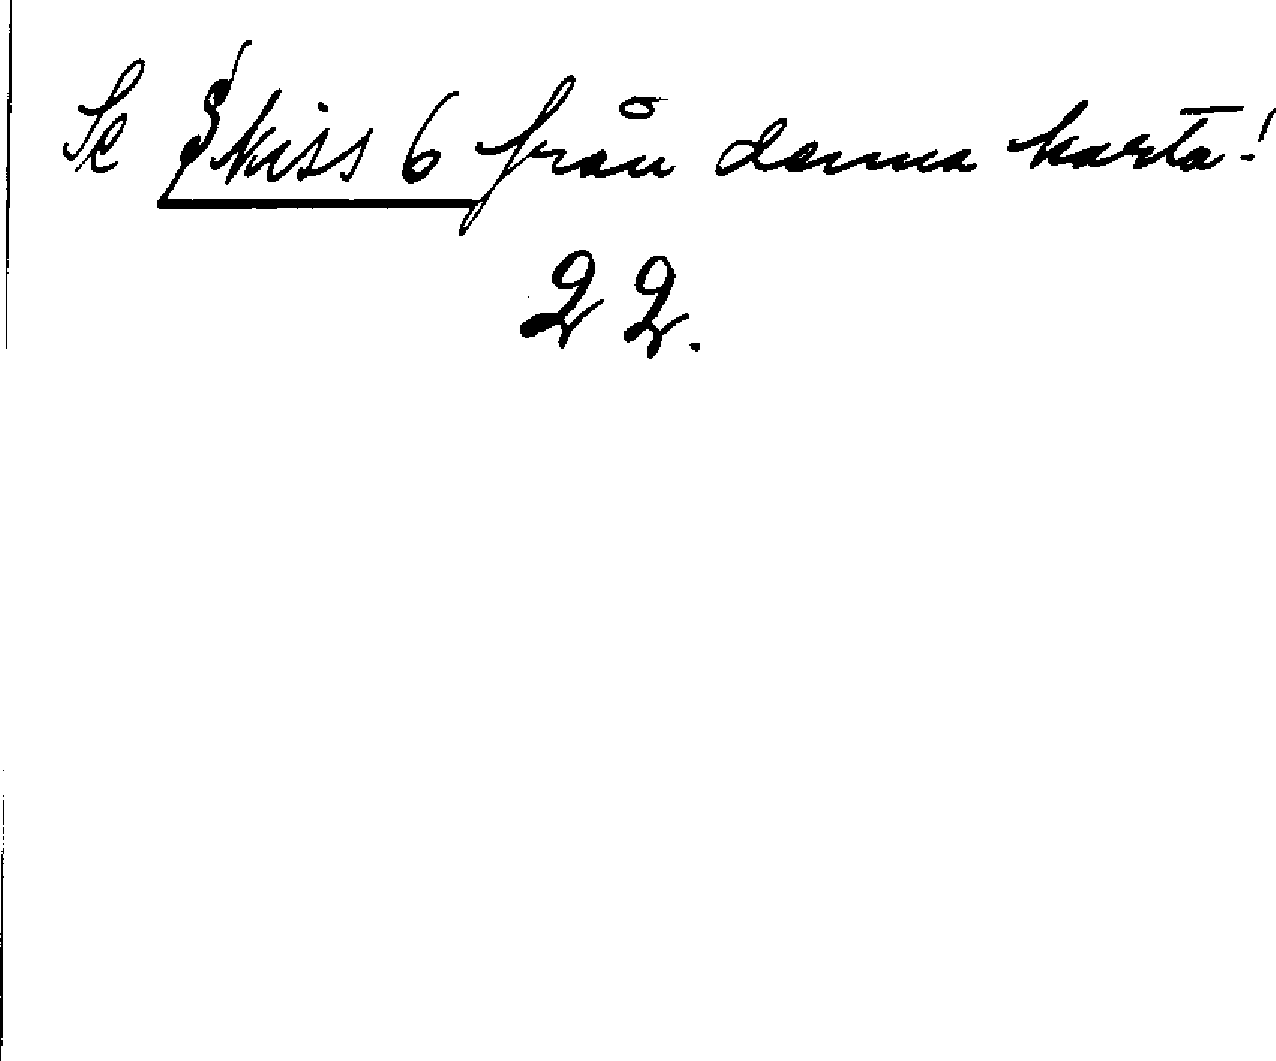 Se Skiss 6 från denna karta!
22.